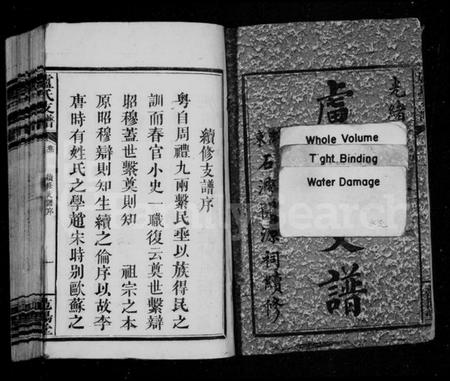 光緒
盧
支譜
東
石源
源祠續修
Whole Volume
Tight Binding
Water Damage
續修支譜序
粵自周禮九兩繫民垂以族得民之
訓而春官小史一職復云奠世繫辯
昭穆蓋世繫奠則知 祖宗之本
原昭穆辯則知生續之倫序以故李
唐時有姓氏之學趙宋時別歐蘇之
盧氏支譜